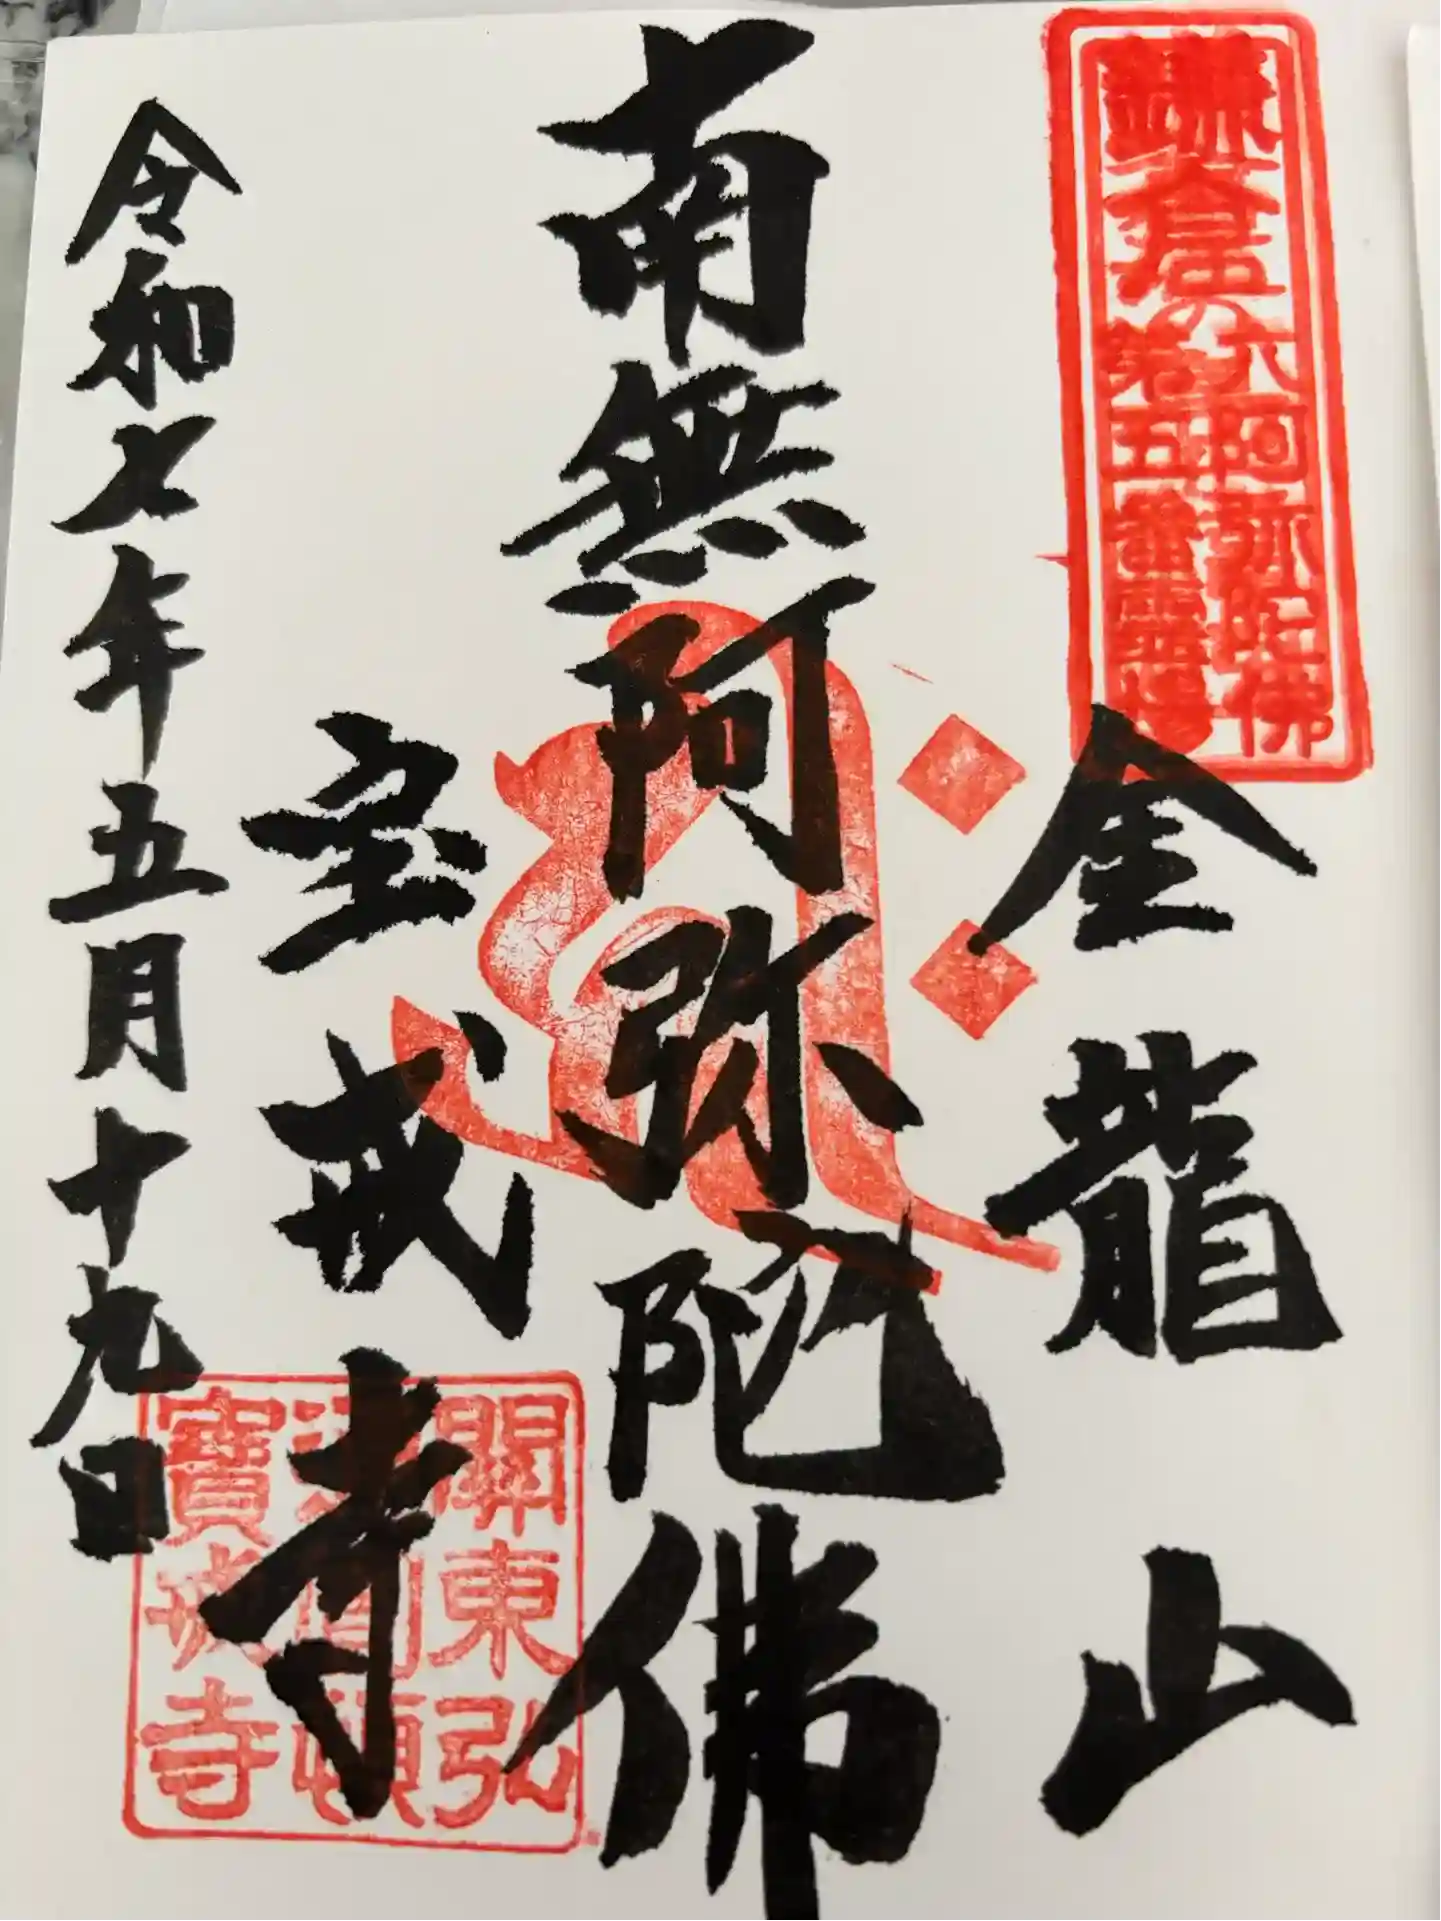 鎌倉の
六阿弥陀佛
第五番霊場
金龍山
南無阿弥陀佛
宝戒寺
關東弘
寶戒寺
令和七年五月十九日